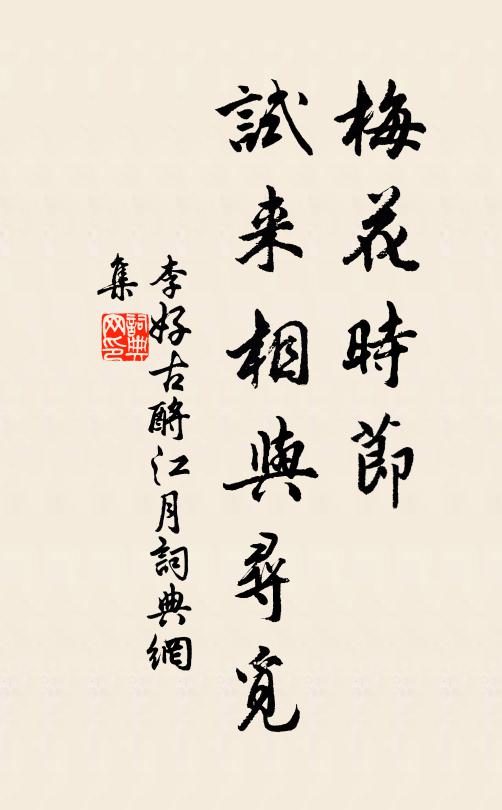 梅花時節
試来相與尋覓
李好古酹江月詞典網
集
詞典网印